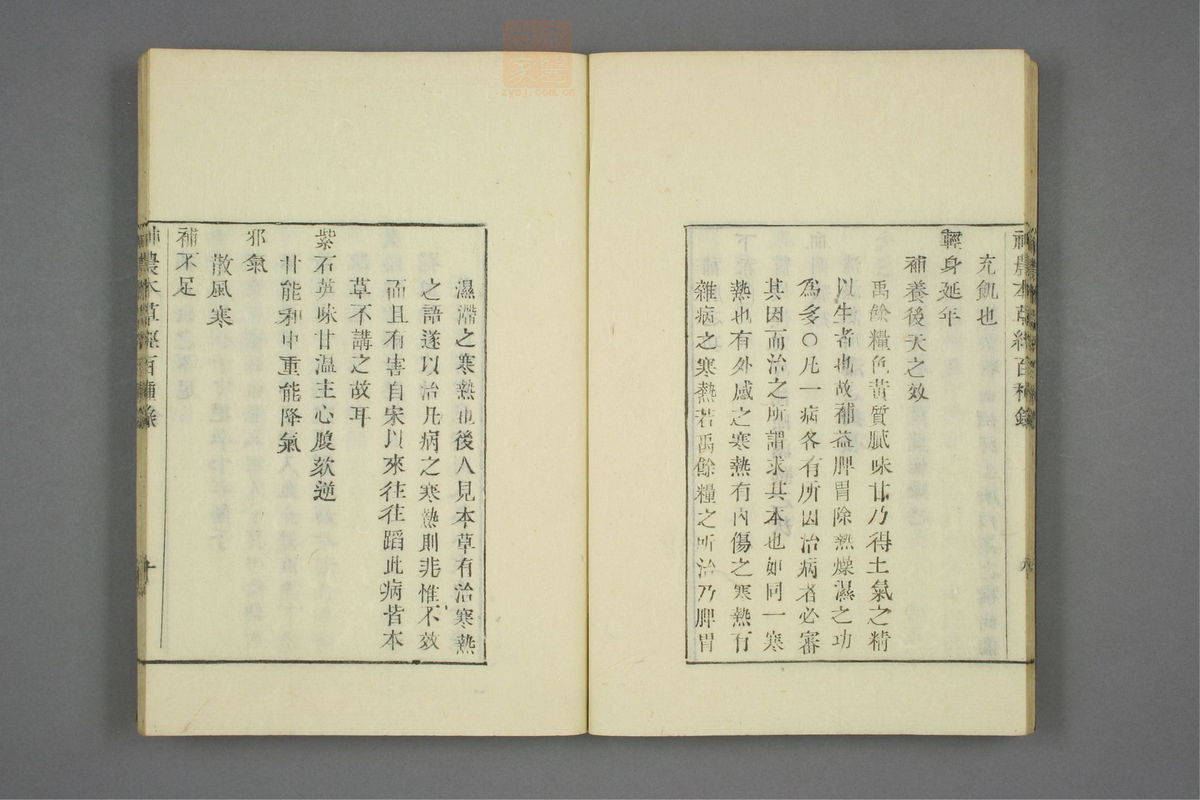 神農本草經百種錄
充飢也
輕身延年
補養後天之效
禹餘糧色黃質膩味甘乃得土氣之精
以生者也故補益脾胃除熱燥濕之功
爲多○凡一病各有所因治病者必審
其因而治之所謂求其本也如同一寒
熱也有外感之寒熱有內傷之寒熱有
雜病之寒熱若禹餘糧之所治乃脾胃
濕滯之寒熱也後人見本草有治寒熱
之語遂以治凡病之寒熱則非惟不效
而且有害自宋以來往往蹈此病皆本
草不講之故耳
紫石英味甘溫主心腹欬逆
甘能和中重能降氣
邪氣
散風寒
補不足
神農本草經百種錄
十
zysj.com.cn